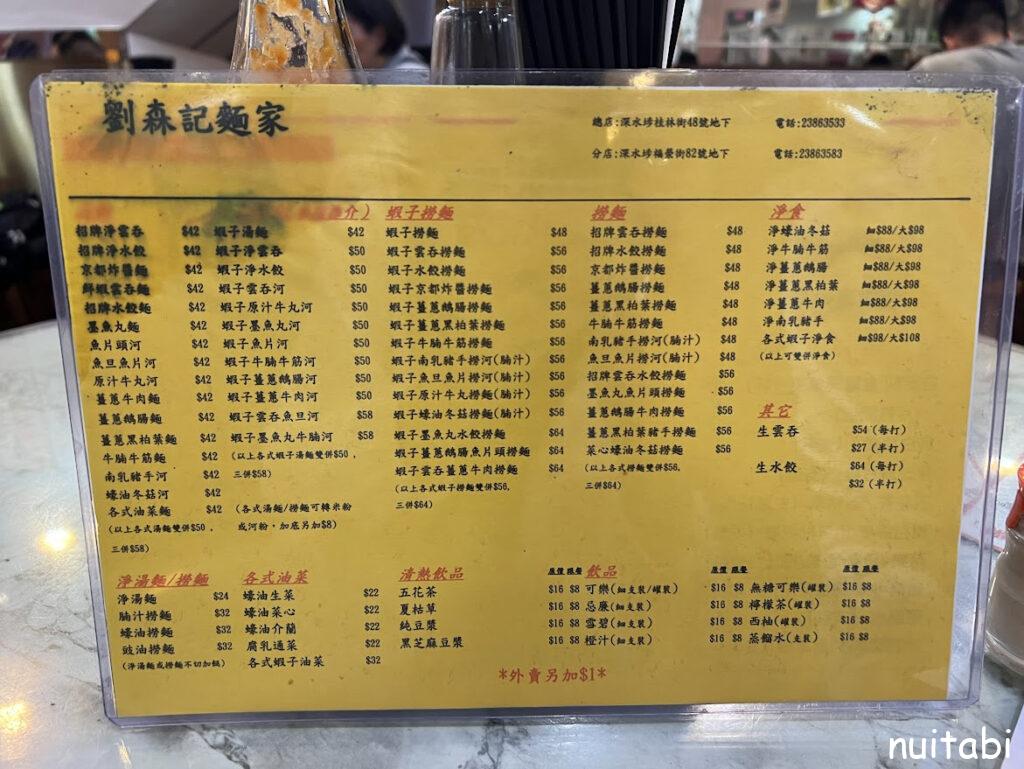 劉森記麵家
總店:深水埗桂林街48號地下 電話:23863533
分店:深水埗福榮街82號地下 電話:23863583
介)
招牌淨雲吞 $42
招牌淨水餃 $42
京都炸醬麵 $42
鮮蝦雲吞麵 $42
招牌水餃麵 $42
墨魚丸麵 $42
魚片頭河 $42
魚旦魚片河 $42
原汁牛丸河 $42
薑蔥牛肉麵 $42
薑蔥鵝腸麵 $42
薑蔥黑柏葉麵 $42
牛腩牛筋麵 $42
南乳豬手河 $42
蠔油冬菇河 $42
各式油菜麵 $42
(以上各式湯麵雙併$50,
三併$58)
蝦子湯麵 $42
蝦子淨雲吞 $50
蝦子淨水餃 $50
蝦子雲吞河 $50
蝦子原汁牛丸河 $50
蝦子墨魚丸河 $50
蝦子魚片河 $50
蝦子牛腩牛筋河 $50
蝦子薑蔥鵝腸河 $50
蝦子薑蔥牛肉河 $50
蝦子雲吞魚旦河 $58
蝦子墨魚丸牛腩河 $58
(以上各式蝦子湯麵雙併$50,
三併$58)
(各式湯麵/撈麵可轉米粉
或河粉,加底另加$8)
蝦子撈麵
蝦子撈麵 $48
蝦子雲吞撈麵 $56
蝦子水餃撈麵 $56
蝦子京都炸醬撈麵 $56
蝦子薑蔥鵝腸撈麵 $56
蝦子薑蔥黑柏葉撈麵 $56
蝦子牛腩牛筋撈麵 $56
蝦子南乳豬手撈河(腩汁) $56
蝦子魚旦魚片撈河(腩汁) $56
蝦子原汁牛丸撈麵(腩汁) $56
蝦子蠔油冬菇撈麵(腩汁) $56
蝦子墨魚丸水餃撈麵 $64
蝦子薑蔥鵝腸魚片頭撈麵 $64
蝦子雲吞薑蔥牛肉撈麵 $64
(以上各式蝦子撈麵雙併$56,
三併$64)
撈麵
招牌雲吞撈麵 $48
招牌水餃撈麵 $48
京都炸醬撈麵 $48
薑蔥鵝腸撈麵 $48
薑蔥黑柏葉撈麵 $48
牛腩牛筋撈麵 $48
南乳豬手撈河(腩汁) $48
魚旦魚片撈河(腩汁) $48
招牌雲吞水餃撈麵 $56
墨魚丸魚片頭撈麵 $56
薑蔥鵝腸牛肉撈麵 $56
薑蔥黑柏葉豬手撈麵 $56
菜心蠔油冬菇撈麵 $56
(以上各式撈麵雙併$56,
三併$64)
淨食
淨蠔油冬菇 細$88/大$98
淨牛腩牛筋 細$88/大$98
淨薑蔥鵝腸 細$88/大$98
淨薑蔥黑柏葉 細$88/大$98
淨薑蔥牛肉 細$88/大$98
淨南乳豬手 細$88/大$98
各式蝦子淨食 細$98/大$108
(以上可雙併淨食)
其它
生雲吞 $54(每打)
$27(半打)
生水餃 $64(每打)
$32(半打)
淨湯麵/撈麵
淨湯麵 $24
腩汁撈麵 $32
蠔油撈麵 $32
豉油撈麵 $32
(淨湯麵或撈麵不切加餸)
各式油菜
蠔油生菜 $22
蠔油菜心 $22
蠔油介蘭 $22
腐乳通菜 $22
各式蝦子油菜 $32
清熱飲品 原價 跟餐
五花茶 $16 $8
夏枯草 $16 $8
純豆漿 $16 $8
黑芝麻豆漿 $16 $8
飲品 原價 跟餐
可樂(細支裝/罐裝) $16 $8
忌廉(細支裝) $16 $8
雪碧(細支裝) $16 $8
橙汁(細支裝) $16 $8
原價 跟餐
無糖可樂(罐裝) $16 $8
檸檬茶(罐裝) $16 $8
西柚(罐裝) $16 $8
蒸餾水(支裝) $16 $8
*外賣另加$1*
nuitabi